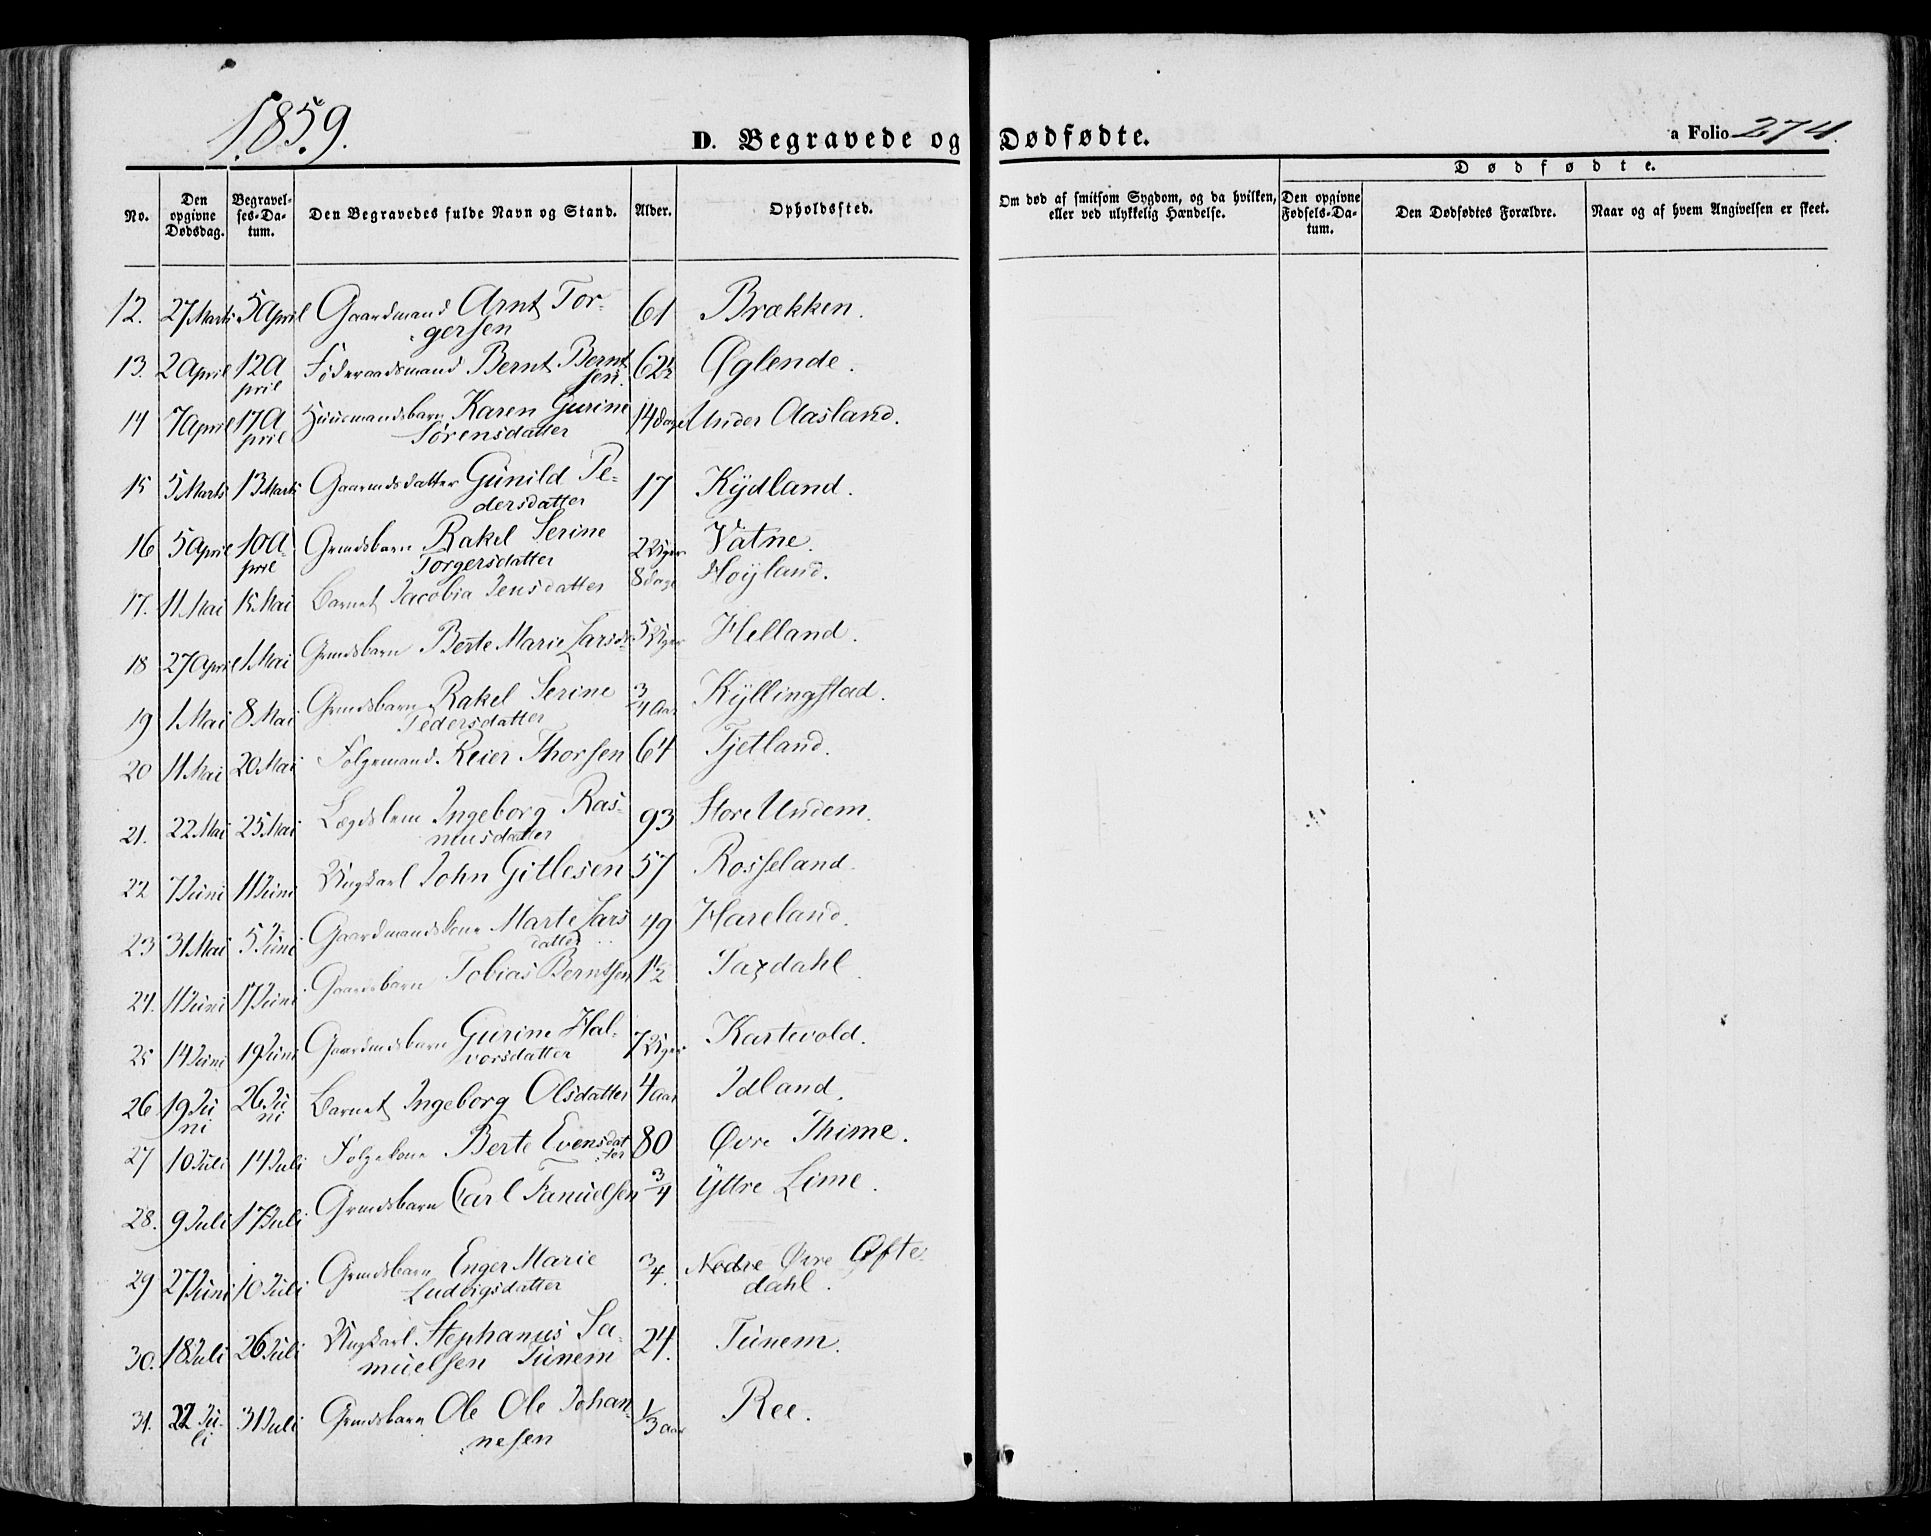 1859.
D. Begravede og Dødfødte.
a Folio 274.
No.
Den opgivne Dødsdag.
Begravelses-Datum.
Den Begravedes fulde Navn og Stand.
Alder.
Opholdssted.
Om død af smitsom Sygdom, og da hvilken, eller ved ulykkelig Hændelse.
Dødfødte.
Den opgivne Fødsels-Datum.
Den Dødfødtes Forældre.
Naar og af hvem Angivelsen er skeet.
12. 27 Marts 5 April Gaardmand Arnt Tor-
gersen 61 Brækken.
13. 2 April 12 A
pril Føderaadsmand Bernt Bernt
sen. 62½ Øglende.
14 7 April 17 A
pril Huusmandsbarn Karen Gurine
Sørensdatter 14 Dage Under Aasland.
15 5 Marts 13 Marts Gaarmdsdatter Gunild Pe-
dersdatter 17 Kydland.
16 5 April 10 A
pril Grmdsbarn Rakel Serine
Torgersdatter 2 Uger Vatne.
17. 11 Mai 15 Mai Barnet Jacobia Jensdatter 8 Dage Høyland.
18 27 April 1 Mai Grmdsbarn Berte Marie Larsdr 5 Uger Helland.
19 1 Mai 8 Mai Grmdsbarn Rakel Serine
Pedersdatter 3/4 Aar Kyllingstad.
20 11 Mai 20 Mai Folgemand Reier Thorsen 64 Tjetland.
21. 22 Mai 25 Mai Lægdslem Ingeborg Ras-
musdatter 93 Store Undem.
22 7 Juni 11 Juni Ungkarl John Gitlesen 57 Rosseland.
23 31 Mai 5 Juni Gaardmandskone Marte Lars
datter 49 Hareland.
24. 11 Juni 17 Juni Gaardsbarn Tobias Berntsen 1½ Taxdahl.
25 14 Juni 19 Juni Gaardmdsbarn Gurine Hal-
vorsdatter 7 Uger Kartevold.
26 19 Ju
ni 26 Ju
ni Barnet Ingeborg Olsdatter 4 Aar Idland.
27 10 Juli 14 Juli Folgekone Berte Evensdat
ter 80 Øvre Thime.
28. 9 Juli 17 Juli Grmdsbarn Carl Samuelsen 3/4 Yttre Lime.
29 27 Juni 10 Juli Grmdsbarn Enger Marie
Ludvigsdatter 3/4. Nedre Øvre Øfte-
dahl.
30. 18 Juli 26 Juli Ungkarl Stephanus Sa-
muelsen Tunem 24. Tunem.
31. 22 Ju-
li 31 Juli Grmdsbarn Ole Ole Johan-
nesen 1/3 Aar Ree.